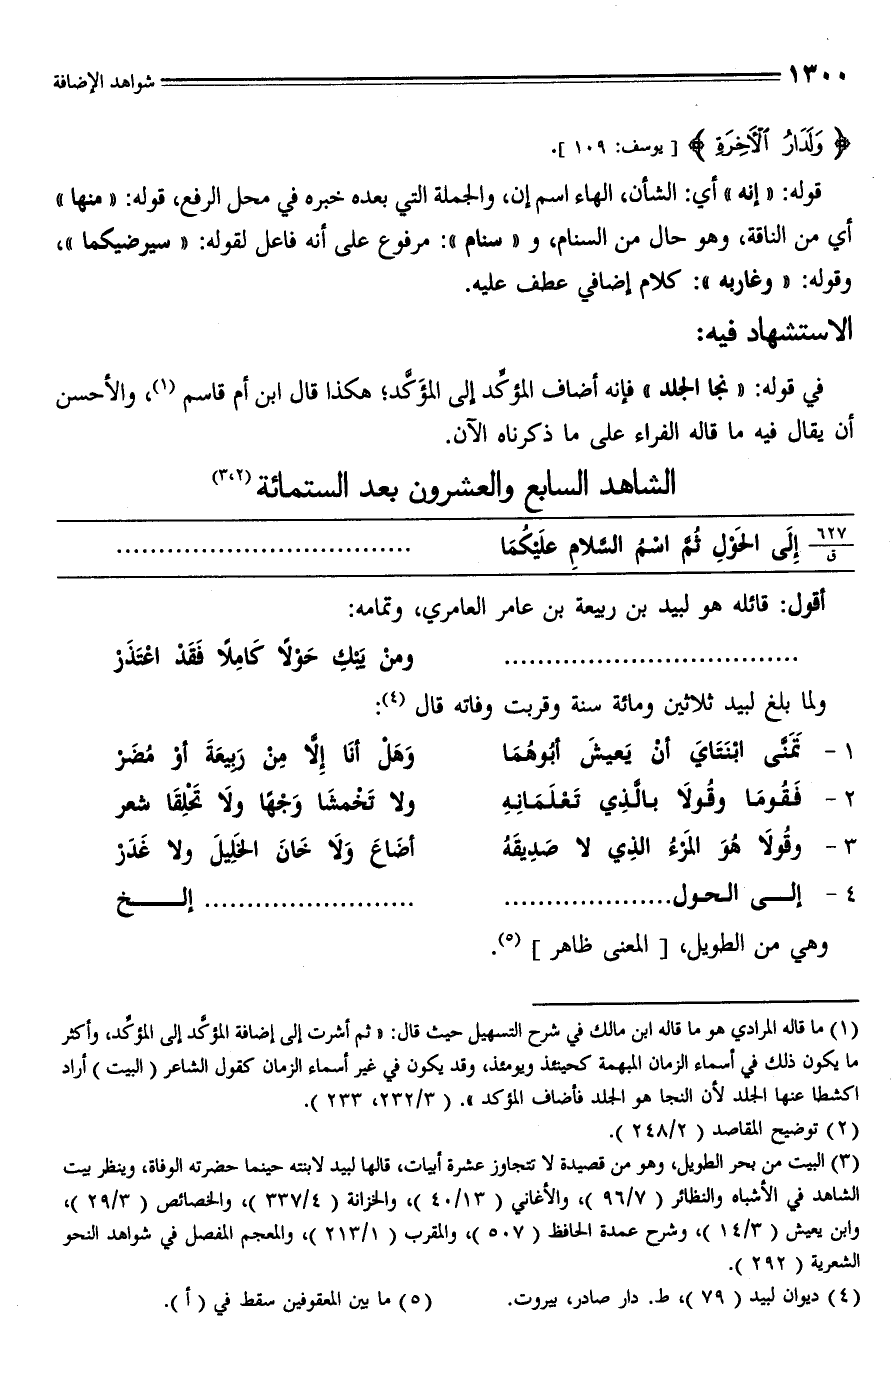 ١٣٠٠ شواهد الإضافة
﴿ وَلَدَارُ ٱلْأَخِرَةِ ﴾ [ يوسف: ١٠٩ ].
قوله: « إنه » أي: الشأن، الهاء اسم إن، والجملة التي بعده خبره في محل الرفع، قوله: « منها »
أي من الناقة، وهو حال من السنام، و « سنام »: مرفوع على أنه فاعل لقوله: « سيرضيكما »،
وقوله: « وغاربه »: كلام إضافي عطف عليه.
الاستشهاد فيه:
في قوله: « نجا الجلد » فإنه أضاف المؤكِّد إلى المؤكَّد؛ هكذا قال ابن أم قاسم (١)، والأحسن
أن يقال فيه ما قاله الفراء على ما ذكرناه الآن.
الشاهد السابع والعشرون بعد الستمائة (٣،٢)
٦٢٧/ق إِلَى الحَوْلِ ثُمَّ اسْمُ السَّلامِ علَيْكُمَا ...................................
أقول: قائله هو لبيد بن ربيعة بن عامر العامري، وتمامه:
................................... ومنْ يَبْكِ حَوْلًا كَامِلًا فَقَدْ اعْتَذَرْ
ولما بلغ لبيد ثلاثين ومائة سنة وقربت وفاته قال (٤):
١ - تَمَنَّى ابْنَتَايَ أنْ يَعيشَ أبُوهُمَا وَهَلْ أنَا إلَّا مِنْ رَبِيعَةَ أوْ مُضَرْ
٢ - فَقُومَا وقُولَا بالَّذِي تَعْلَمَانِهِ ولا تَخْمشَا وَجْهًا ولَا تَحْلِقَا شعر
٣ - وقُولَا هُوَ المَرْءُ الذِي لا صَدِيقَهُ أضَاعَ وَلَا خَانَ الخَلِيلَ ولا غَدَرْ
٤ - إلـــى الـحـول.................... ......................... إلـــــــخ
وهي من الطويل، [ المعنى ظاهر ] (٥).
(١) ما قاله المرادي هو ما قاله ابن مالك في شرح التسهيل حيث قال: « ثم أشرت إلى إضافة المؤكَّد إلى المؤكِّد، وأكثر
ما يكون ذلك في أسماء الزمان المبهمة كحينئذ ويومئذ، وقد يكون في غير أسماء الزمان كقول الشاعر ( البيت ) أراد
اكشطا عنها الجلد لأن النجا هو الجلد فأضاف المؤكد ». ( ٢٣٢/٣، ٢٣٣ ).
(٢) توضيح المقاصد ( ٢٤٨/٢ ).
(٣) البيت من بحر الطويل، وهو من قصيدة لا تتجاوز عشرة أبيات، قالها لبيد لابنته حينما حضرته الوفاة، وينظر بيت
الشاهد في الأشباه والنظائر ( ٩٦/٧ )، والأغاني ( ٤٠/١٣ )، والخزانة ( ٣٣٧/٤ )، والخصائص ( ٢٩/٣ )،
وابن يعيش ( ١٤/٣ )، وشرح عمدة الحافظ ( ٥٠٧ )، والمقرب ( ٢١٣/١ )، والمعجم المفصل في شواهد النحو
الشعرية ( ٢٩٢ ).
(٤) ديوان لبيد ( ٧٩ )، ط. دار صادر، بيروت. (٥) ما بين المعقوفين سقط في ( أ ).